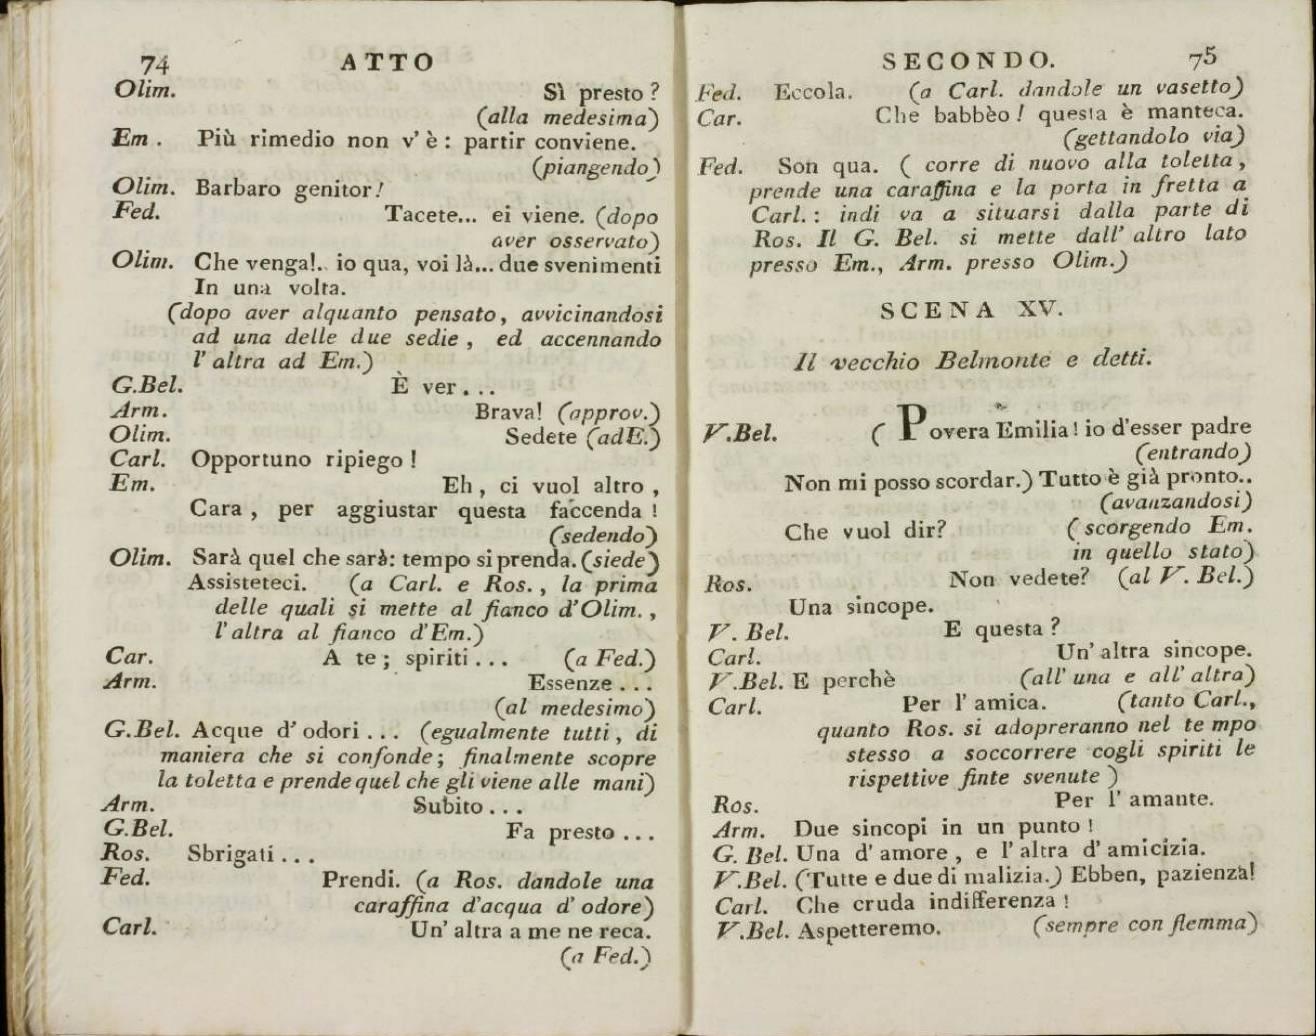 74 ATTO
Olim. Sì presto ?
(alla medesima)
Em . Più rimedio non v' è : partir conviene.
(piangendo)
Olim. Barbaro genitor!
Fed. Tacete... ei viene. (dopo
aver osservato)
Olim. Che venga!.. io qua, voi là... due svenimenti
In una volta.
(dopo aver alquanto pensato, avvicinandosi
ad una delle due sedie , ed accennando
l' altra ad Em.)
G.Bel. È ver...
Arm. Brava! (approv.)
Olim. Sedete (adE.)
Carl. Opportuno ripiego !
Em. Eh , ci vuol altro ,
Cara , per aggiustar questa faccenda !
(sedendo)
Olim. Sarà quel che sarà: tempo si prenda. (siede)
Assisteteci. (a Carl. e Ros. , la prima
delle quali si mette al fianco d'Olim. ,
l'altra al fianco d'Em.)
Car. A te ; spiriti... (a Fed.)
Arm. Essenze...
(al medesimo)
G.Bel. Acque d' odori... (egualmente tutti, di
maniera che si confonde; finalmente scopre
la toletta e prende quel che gli viene alle mani)
Arm. Subito...
G.Bel. Fa presto...
Ros. Sbrigati...
Fed. Prendi. (a Ros. dandole una
caraffina d'acqua d' odore)
Carl. Un' altra a me ne reca.
(a Fed.)
SECONDO. 75
Fed. Eccola. (a Carl. dandole un vasetto)
Car. Che babbèo ! questa è manteca.
(gettandolo via)
Fed. Son qua. ( corre di nuovo alla toletta ,
prende una caraffina e la porta in fretta a
Carl. : indi va a situarsi dalla parte di
Ros. Il G. Bel. si mette dall' altro lato
presso Em., Arm. presso Olim.)
SCENA XV.
Il vecchio Belmonte e detti.
V.Bel. ( Povera Emilia! io d'esser padre
(entrando)
Non mi posso scordar.) Tutto è già pronto..
(avanzandosi)
Che vuol dir? (scorgendo Em.
in quello stato)
Ros. Non vedete? (al V. Bel.)
Una sincope.
V. Bel. E questa ?
Carl. Un' altra sincope.
V.Bel. E perchè (all' una e all' altra)
Carl. Per l' amica. (tanto Carl.,
quanto Ros. si adopreranno nel te mpo
stesso a soccorrere cogli spiriti le
rispettive finte svenute )
Ros. Per l' amante.
Arm. Due sincopi in un punto !
G. Bel. Una d' amore , e l' altra d' amicizia.
V.Bel. (Tutte e due di malizia.) Ebben, pazienza!
Carl. Che cruda indifferenza !
V.Bel. Aspetteremo. (sempre con flemma)